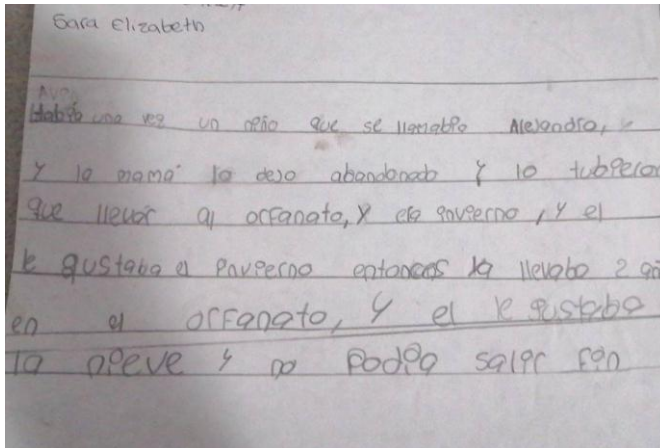 Sara Elizabeth
Había una vez un niño que se llamaba Alejandro,
y la mamá lo dejo abandonado y lo tubieron
que llevar al orfanato, y era invierno, y el
le gustaba el invierno entonces ya llevaba 2 añ
en el orfanato, y el le gustaba
la nieve y no podia salir